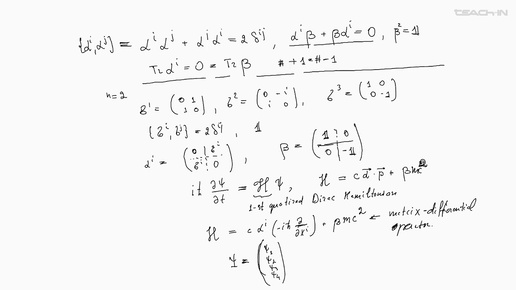 TEACH-IN
{αⁱ, αʲ} ≡ αⁱαʲ + αʲαⁱ = 2δⁱʲ, αⁱβ + βαⁱ = 0, β² = 𝟙
Tr αⁱ = 0 = Tr β # +1 = # -1
n=2 σ¹ = (0 1; 1 0), σ² = (0 -i; i 0), σ³ = (1 0; 0 -1)
{σⁱ, σʲ} = 2δⁱʲ, 𝟙
αⁱ = (0 σⁱ; σⁱ 0), β = (𝟙 0; 0 -𝟙)
iħ ∂Ψ/∂t = ℋ Ψ, ℋ = c α⃗·p⃗ + βmc²
1-st quantized Dirac Hamiltonian
ℋ = c αⁱ (-iħ ∂/∂xⁱ) + βmc² ← matrix-differential
operator.
Ψ = (ψ₁; ψ₂; ψ₃; ψ₄)